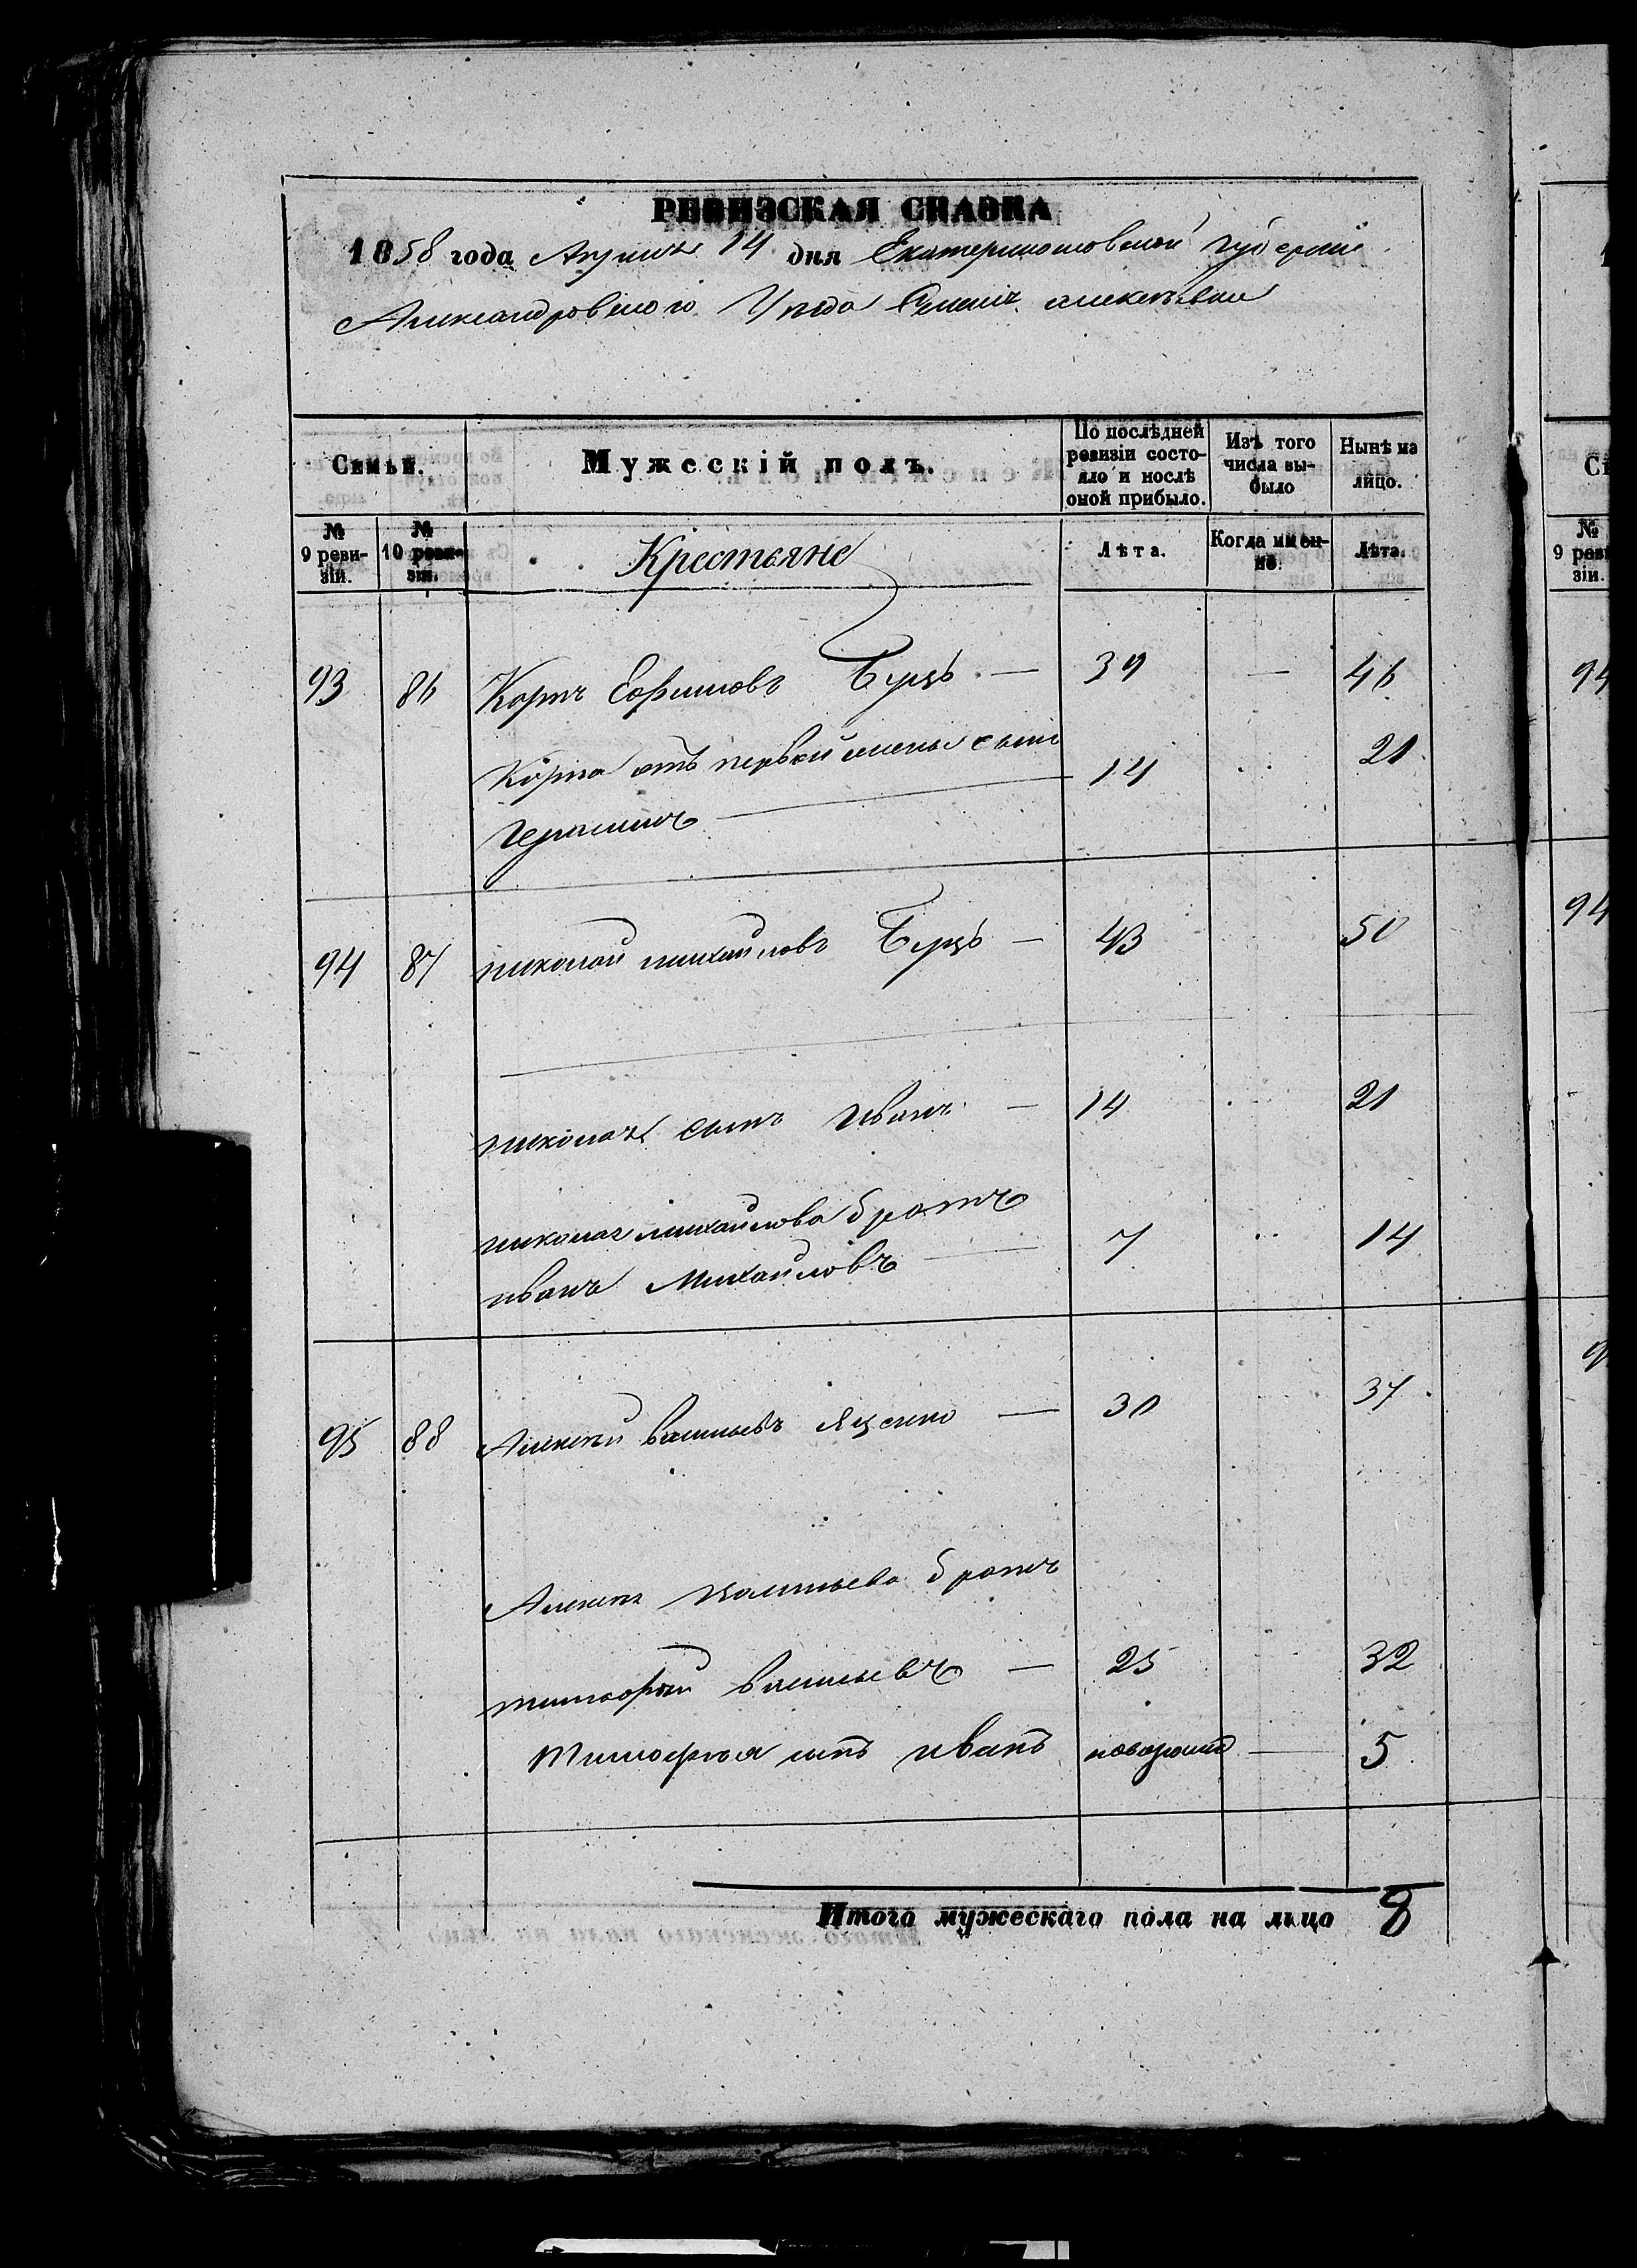 РЕВИЗСКАЯ СКАЗКА
1858 года Апреля 14 дня Екатеринославской губерніи
Александровского Уезда Села алексеевки
Семьи.
Мужескій полъ.
По послѣдней ревизіи состояло и послѣ оной прибыло.
Изъ того числа выбыло
Нынѣ на лицо.
№ 9 ревизіи.
№ 10 ревизіи.
Крестьяне
Лѣта.
Когда именно.
Лѣта.
93 86 Карпъ Ефимовъ Буцъ — 39 — 46
Карпа отъ первой жены сынъ
Герасимъ — 14 21
94 87 николай михайловъ Буцъ — 43 50
николая сынъ Иванъ — 14 21
николая михайлова братъ
иванъ Михайловъ 7 14
95 88 Алексей васильевъ Яценко — 30 37
Алексея васильева братъ
тимофей васильевъ — 25 32
Тимофея сынъ иванъ новорожд — 5
Итого мужескаго пола на лицо 8
94
94